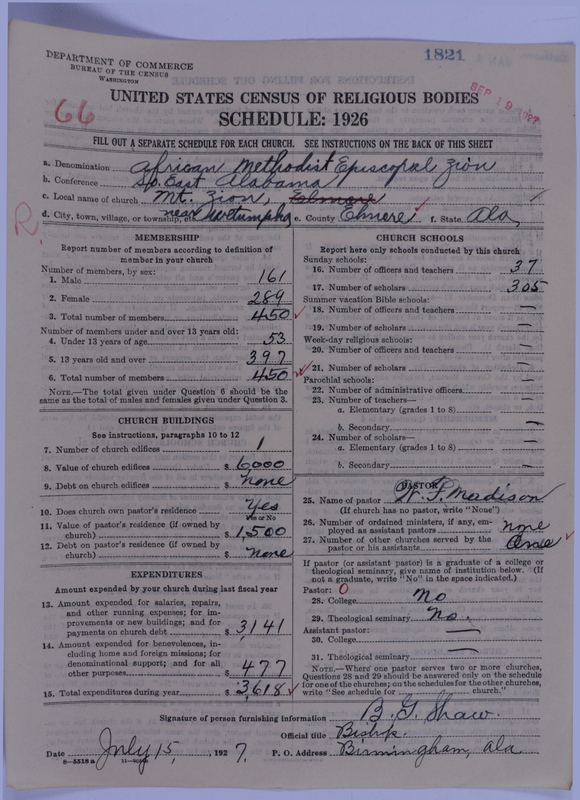 1821
DEPARTMENT OF COMMERCE
BUREAU OF THE CENSUS
WASHINGTON
SEP 19 1927
66
UNITED STATES CENSUS OF RELIGIOUS BODIES
SCHEDULE: 1926
FILL OUT A SEPARATE SCHEDULE FOR EACH CHURCH. SEE INSTRUCTIONS ON THE BACK OF THIS SHEET
a. Denomination African Methodist Episcopal Zion
b. Conference So. East Alabama
c. Local name of church Mt. Zion, Elmore
d. City, town, village, or township, etc. near Wetumpka e. County Elmore f. State Ala,
R.
MEMBERSHIP
Report number of members according to definition of
member in your church
Number of members, by sex:
1. Male 161
2. Female 289
3. Total number of members 450
Number of members under and over 13 years old:
4. Under 13 years of age 53
5. 13 years old and over 397
6. Total number of members 450
NOTE.—The total given under Question 6 should be the
same as the total of males and females given under Question 3.
CHURCH BUILDINGS
See instructions, paragraphs 10 to 12
7. Number of church edifices 1
8. Value of church edifices $ 6000
9. Debt on church edifices $ none
10. Does church own pastor's residence Yes
Yes or No
11. Value of pastor's residence (if owned by
church) $ 1,500
12. Debt on pastor's residence (if owned by
church) $ none
EXPENDITURES
Amount expended by your church during last fiscal year
13. Amount expended for salaries, repairs,
and other running expenses; for im-
provements or new buildings; and for
payments on church debt $ 3,141
14. Amount expended for benevolences, in-
cluding home and foreign missions; for
denominational support; and for all
other purposes $ 477
15. Total expenditures during year $ 3,618
CHURCH SCHOOLS
Report here only schools conducted by this church
Sunday schools:
16. Number of officers and teachers 37
17. Number of scholars 305
Summer vacation Bible schools:
18. Number of officers and teachers —
19. Number of scholars —
Week-day religious schools:
20. Number of officers and teachers —
21. Number of scholars —
Parochial schools:
22. Number of administrative officers —
23. Number of teachers—
a. Elementary (grades 1 to 8) —
b. Secondary —
24. Number of scholars—
a. Elementary (grades 1 to 8) —
b. Secondary —
PASTOR
25. Name of pastor W. F. Madison
(If church has no pastor, write "None")
26. Number of ordained ministers, if any, em-
ployed as assistant pastors none
27. Number of other churches served by the
pastor or his assistants One
If pastor (or assistant pastor) is a graduate of a college or
theological seminary, give name of institution below. (If
not a graduate, write "No" in the space indicated.)
Pastor: 0
28. College No
29. Theological seminary No.
Assistant pastor:
30. College —
31. Theological seminary —
NOTE.—Where one pastor serves two or more churches,
Questions 28 and 29 should be answered only on the schedule
for one of the churches; on the schedules for the other churches,
write "See schedule for church."
Signature of person furnishing information B. G. Shaw.
Official title Bishop.
Date July 15, 1927. P. O. Address Birmingham, Ala
8—5518 a